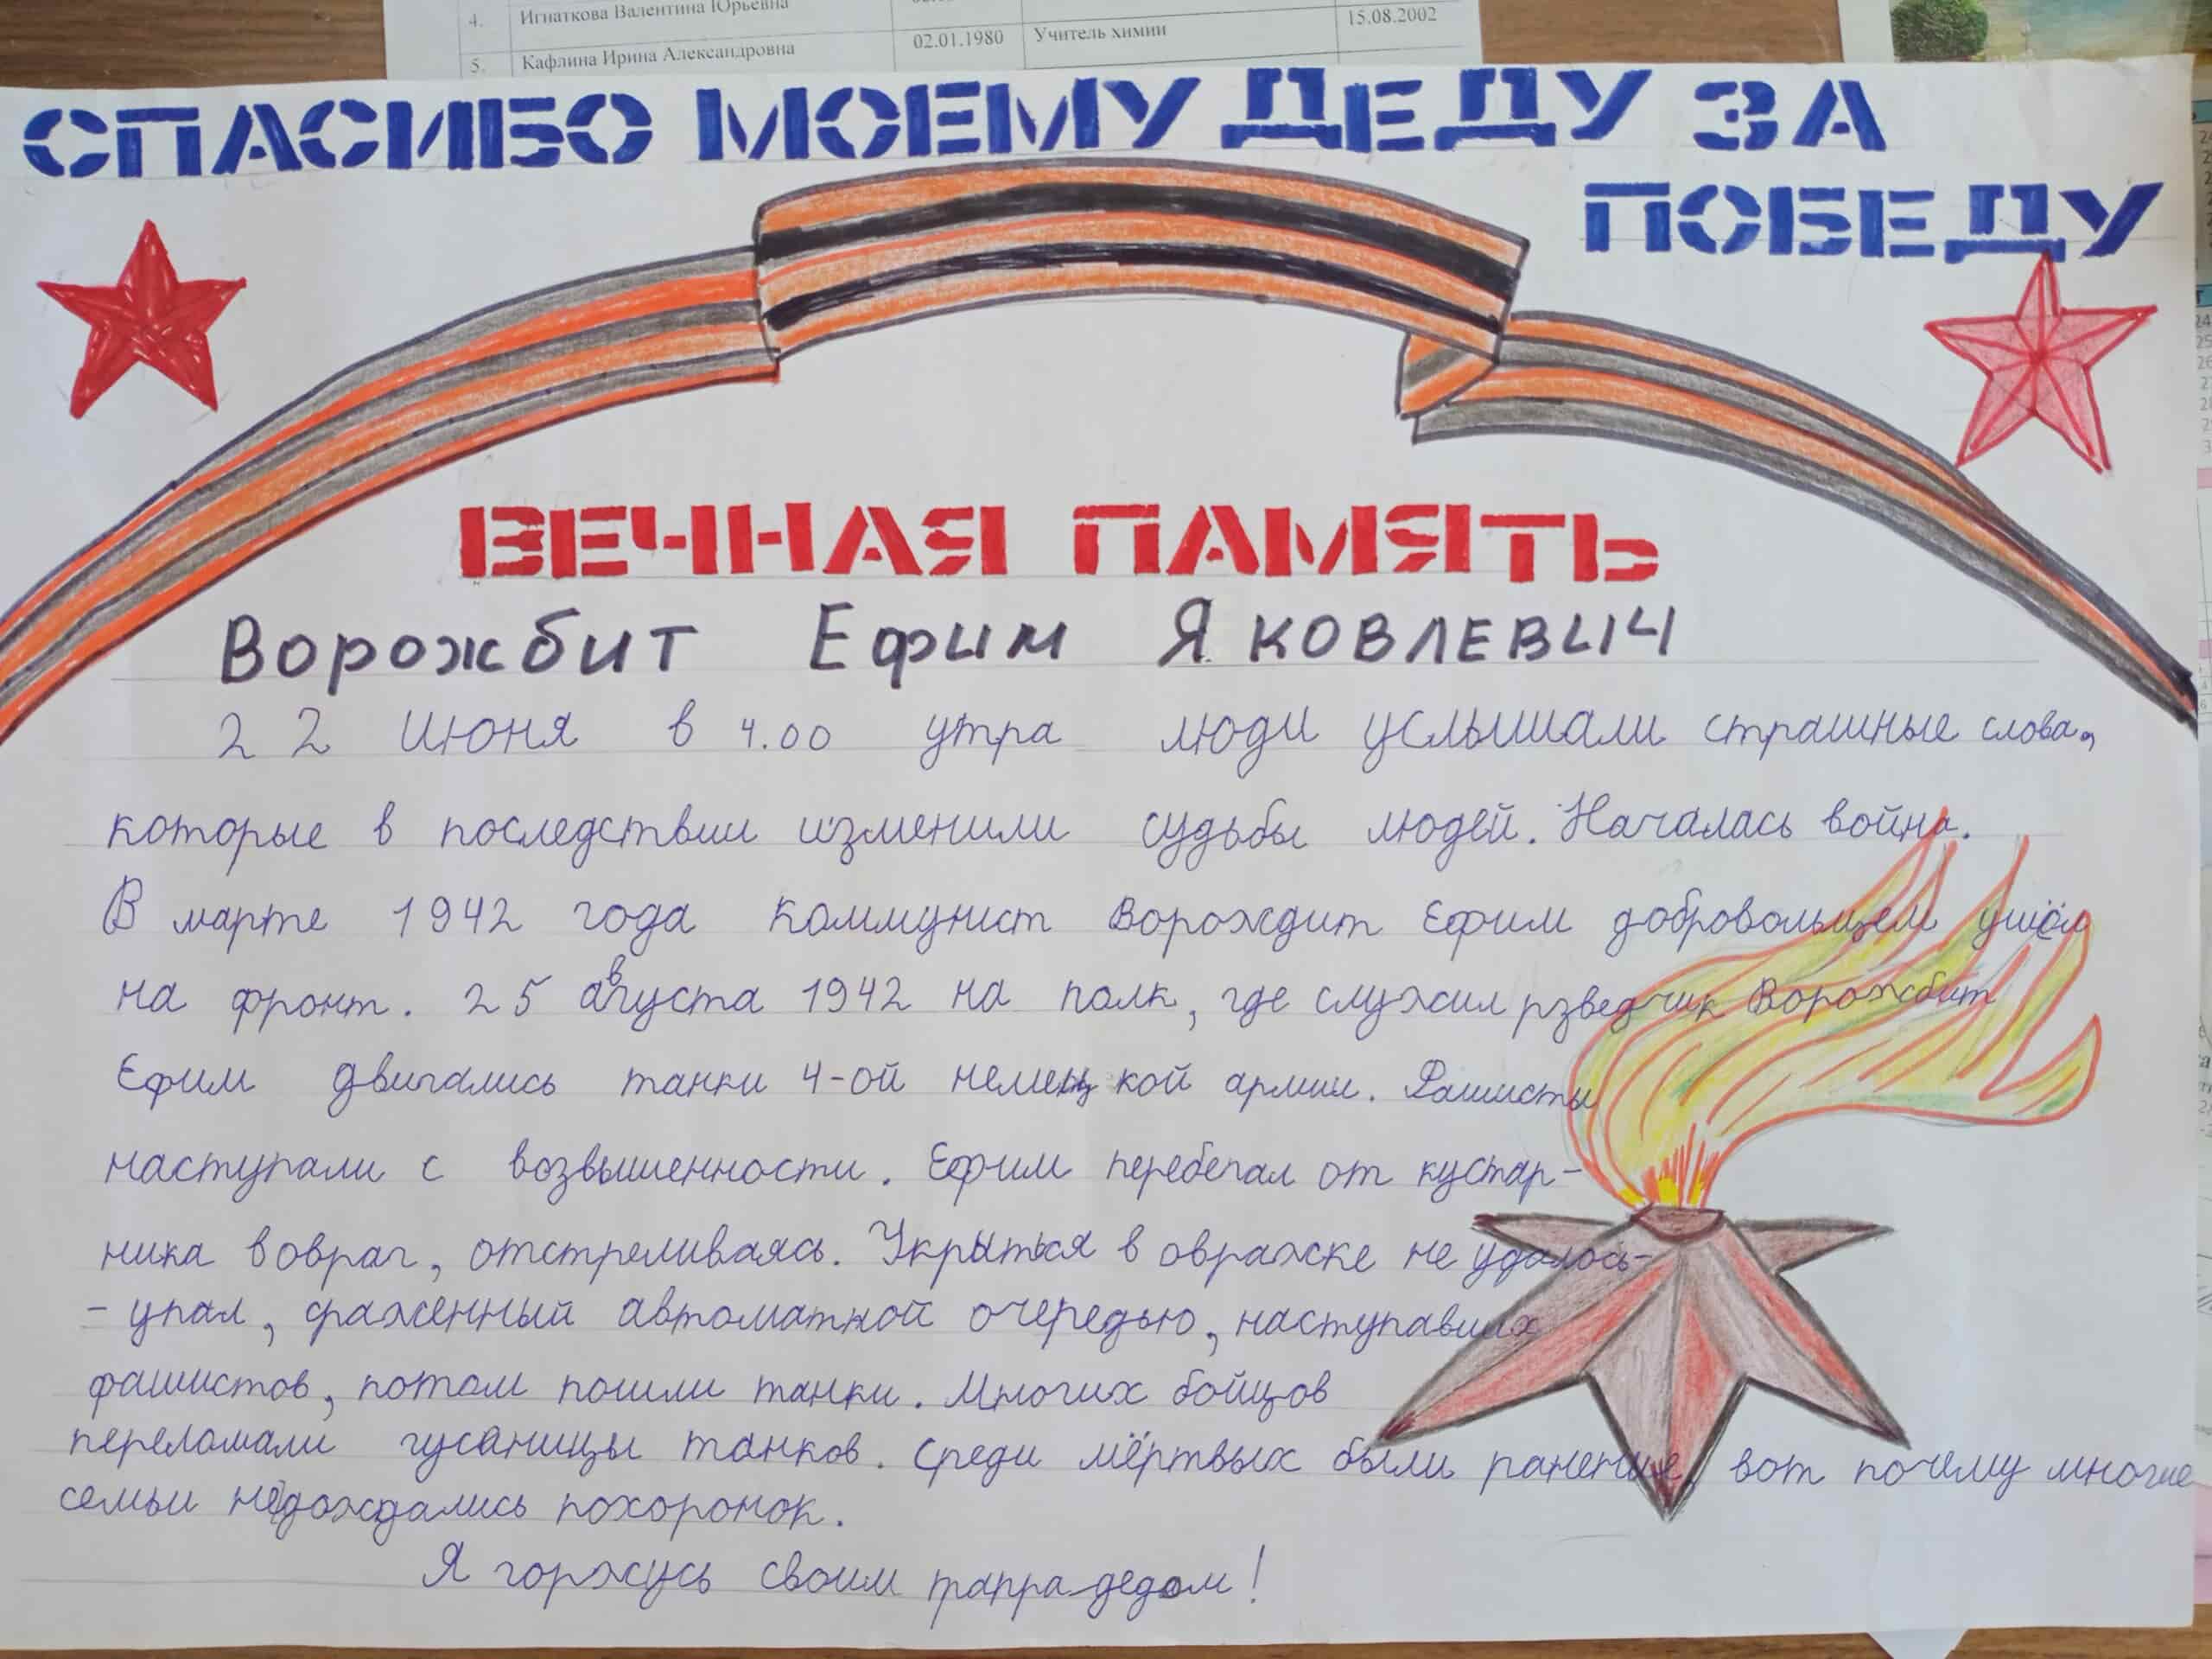 4. Игнаткова Валентина Юрьевна
15.08.2002
5. Кафлина Ирина Александровна 02.01.1980 Учитель химии
СПАСИБО МОЕМУ ДЕДУ ЗА
ПОБЕДУ
ВЕЧНАЯ ПАМЯТЬ
Ворожбит Ефим Яковлевич
22 июня в 4.00 утра люди услышали страшные слова,
которые в последствии изменили судьбы людей. Началась война.
В марте 1942 года коммунист Ворождит Ефим добровольцем ушёл
на фронт. 25 августа 1942 на полк, где служил рзведчик Ворожбит
Ефим двигались танки 4-ой немецкой армии. Фашисты
наступали с возвышенности. Ефим перебегал от кустар-
ника в овраг, отстреливаясь. Укрыться в овражке не удалось-
- упал, сраженный автоматной очередью, наступавших
фашистов, потом пошли танки. Многих бойцов
переломали гусаницы танков. Среди мёртвых были раненые, вот почему многие
семьи недождались похоронок.
Я горжусь своим прапра-дедом!